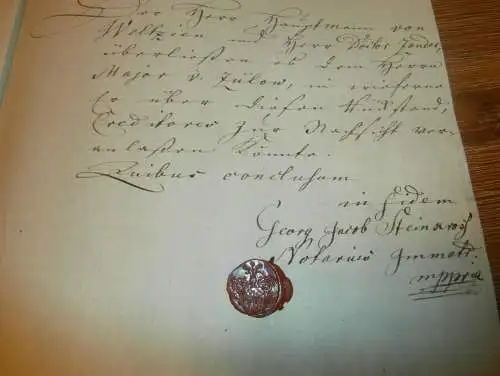 Der Herr Hauptmann von
Weltzien und Herr Zander,
überließen es dem Herrn
Major v. Zülow, in wieferne
Er über diesen Rückstand,
Creditores zur Nachsicht ver-
anlaßen könnte.
Quibus conclusum
in fidem
Georg Jacob Steinkopf
Notarius Immatr.
mppria